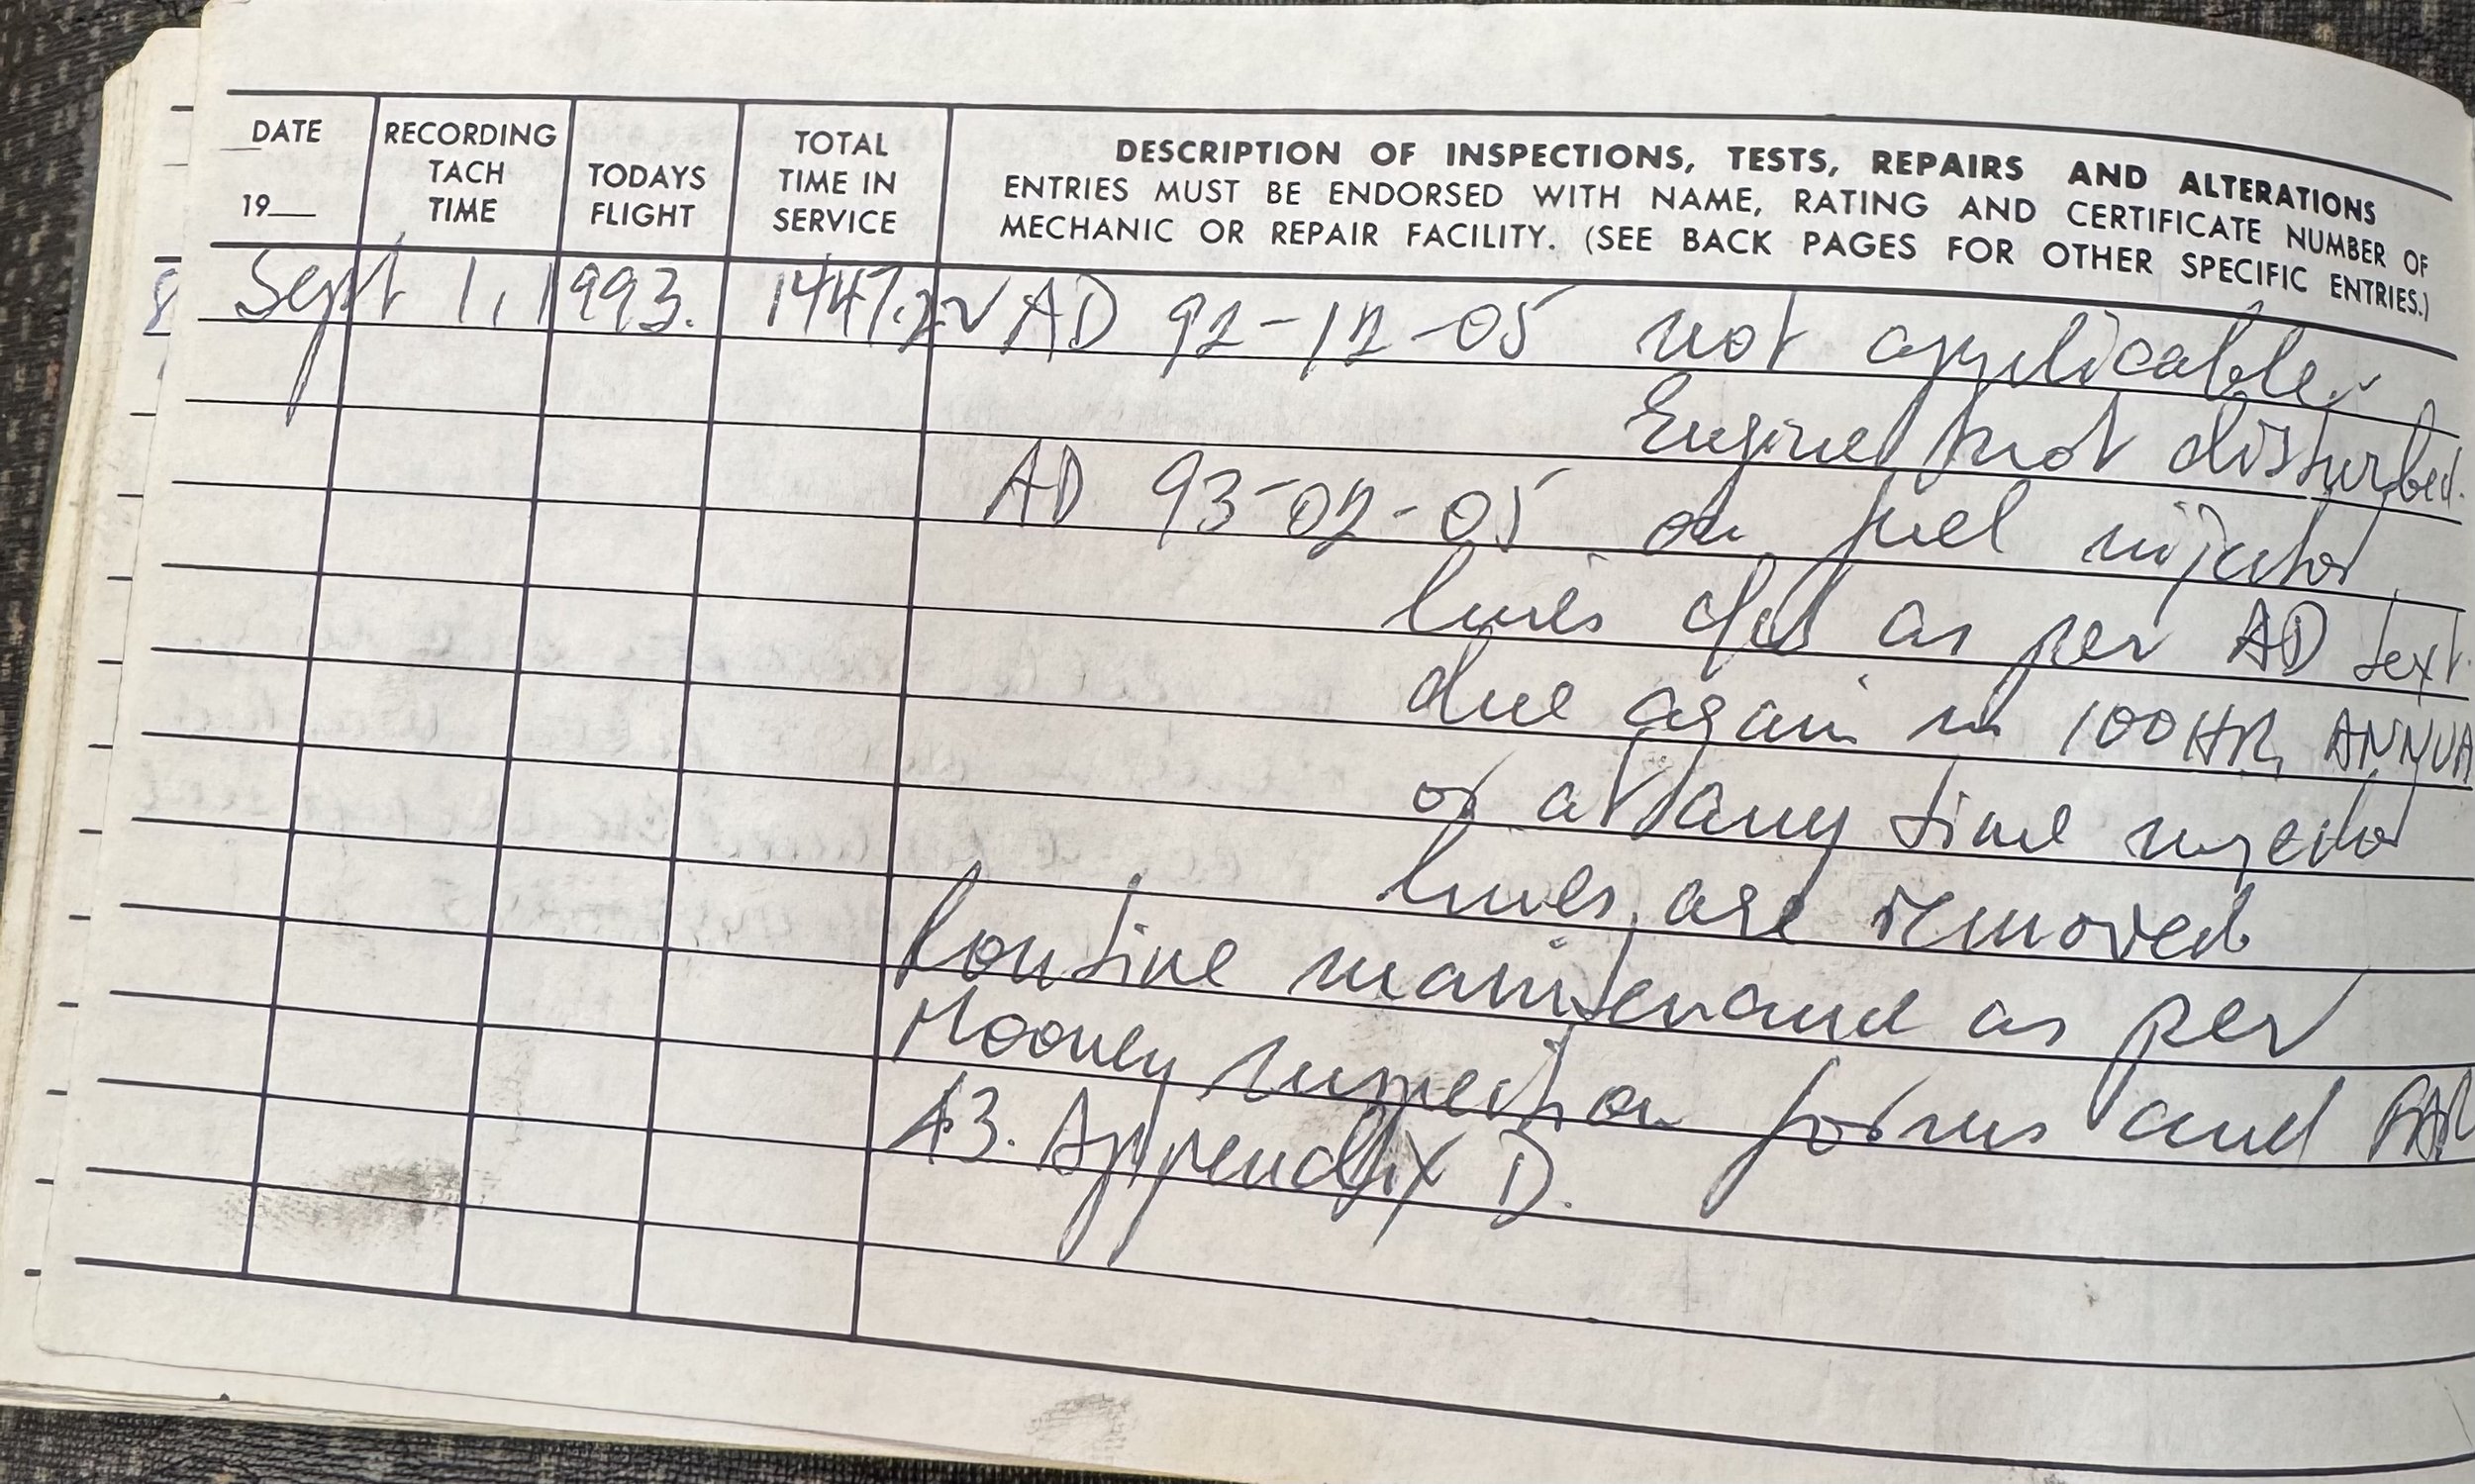 DATE RECORDING TACH TIME TODAYS FLIGHT TOTAL TIME IN SERVICE DESCRIPTION OF INSPECTIONS, TESTS, REPAIRS AND ALTERATIONS
19__ ENTRIES MUST BE ENDORSED WITH NAME, RATING AND CERTIFICATE NUMBER OF
MECHANIC OR REPAIR FACILITY. (SEE BACK PAGES FOR OTHER SPECIFIC ENTRIES.)
Sept 1, 1993. 1447.2 AD 92-12-05 not applicable.
Engine not disturbed.
AD 93-02-05 on fuel injector
lines as per AD text.
due again in 100HR, ANNUA
or at any time injector
lines are removed
Routine maintenance as per
Mooney inspection forms and FAR
43. Appendix D.